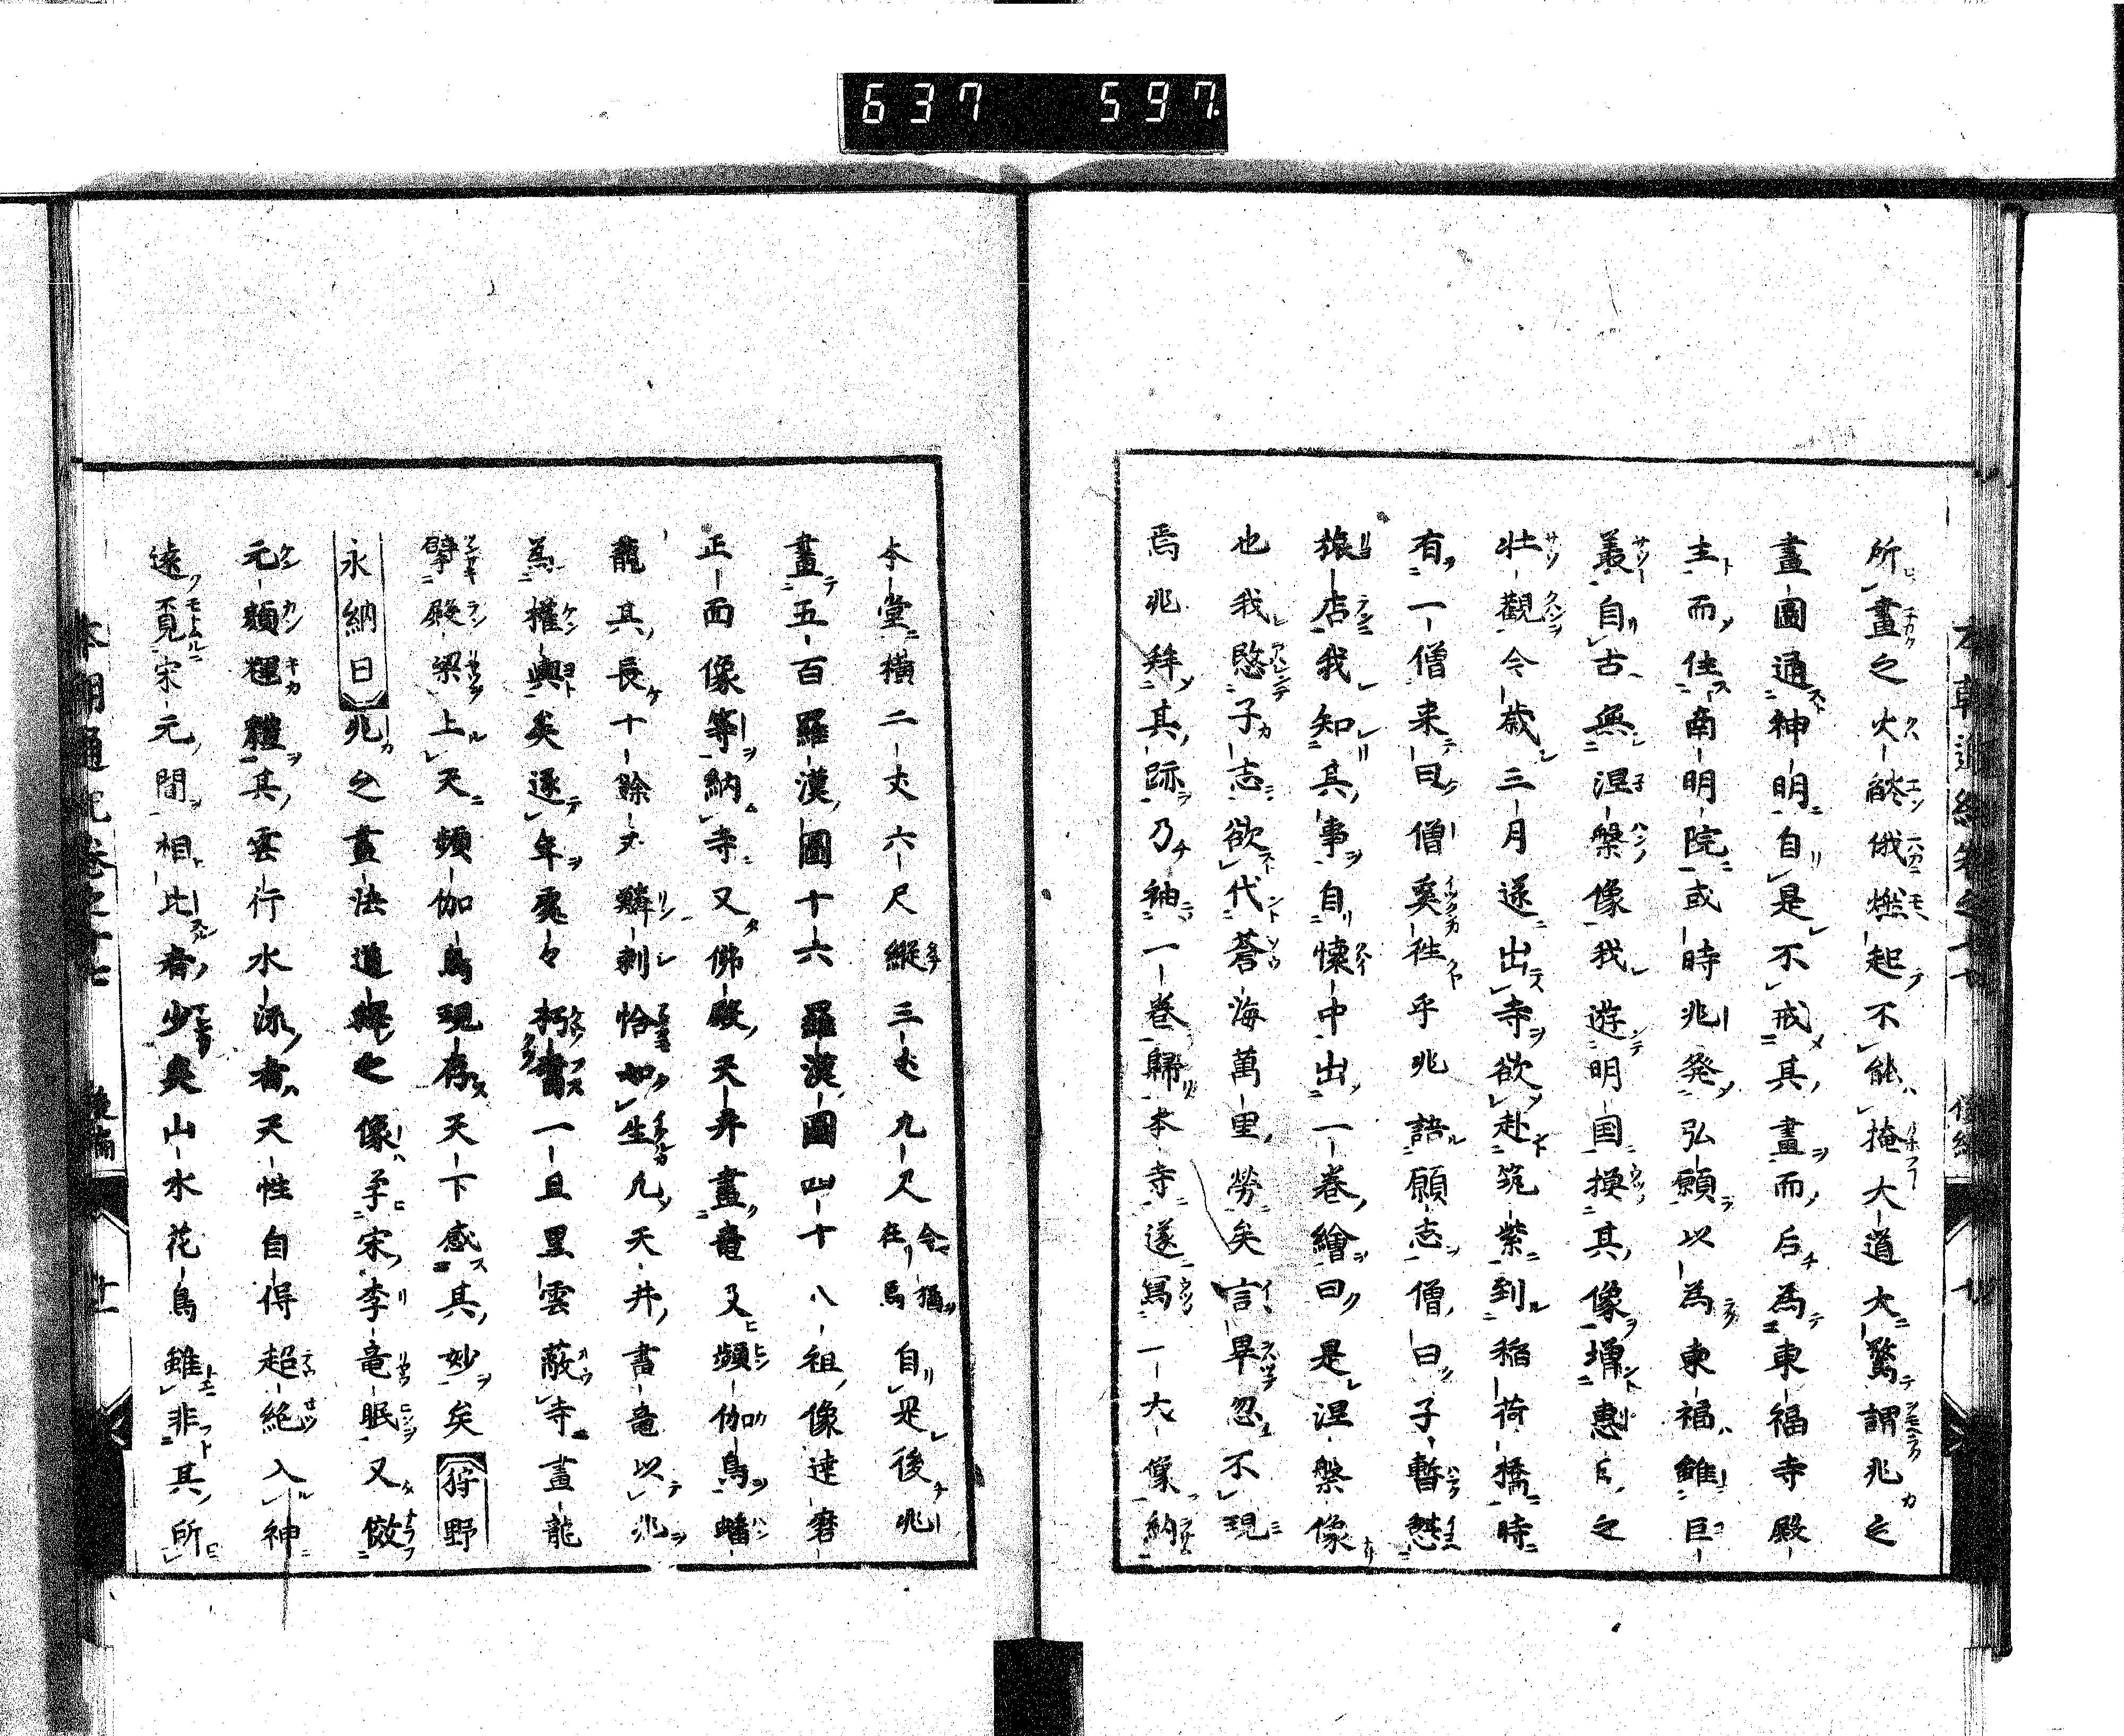 637 597.
所畫之火㷔俄燃起不能掩大道大驚謂兆之
畫圖通神明自是不戒其畫而后為東福寺殿
主而住南明院或時兆発弘願以為東福雖巨
叢自古無涅槃像我遊明国摸其像増惠日之
壮觀今歳三月遂出寺欲赴筑紫到稲荷橋時
有一僧来曰僧奚徃乎兆語願志僧曰子暫憇
旅店我知其事自懐中出一巻繪曰是涅槃像
也我愍子志欲代蒼海萬里勞矣言畢忽不現
焉兆拜其跡乃袖一巻歸本寺遂寫一大像納
本堂横二丈六尺縦三丈九尺今猶在焉自是後兆
畫五百羅漢圖十六羅漢圖四十八祖像達磨
正面像等納寺又佛殿天井畫竜又頻伽鳥蟠
龍其長十餘丈鱗剥恰如生凡天井書竜以兆
為權輿矣逐年處々朽書一旦黒雲蔽寺畫龍
擘殿梁上天頻伽鳥現存天下感其妙矣狩野
永納曰兆之畫法道釋之像学宋李竜眠又倣
元顔輝體其雲行水流者天性自得超絶入神
遠覓宋元間相比者少矣山水花鳥雖非其所
本朝通紀巻之十七 後編 十一